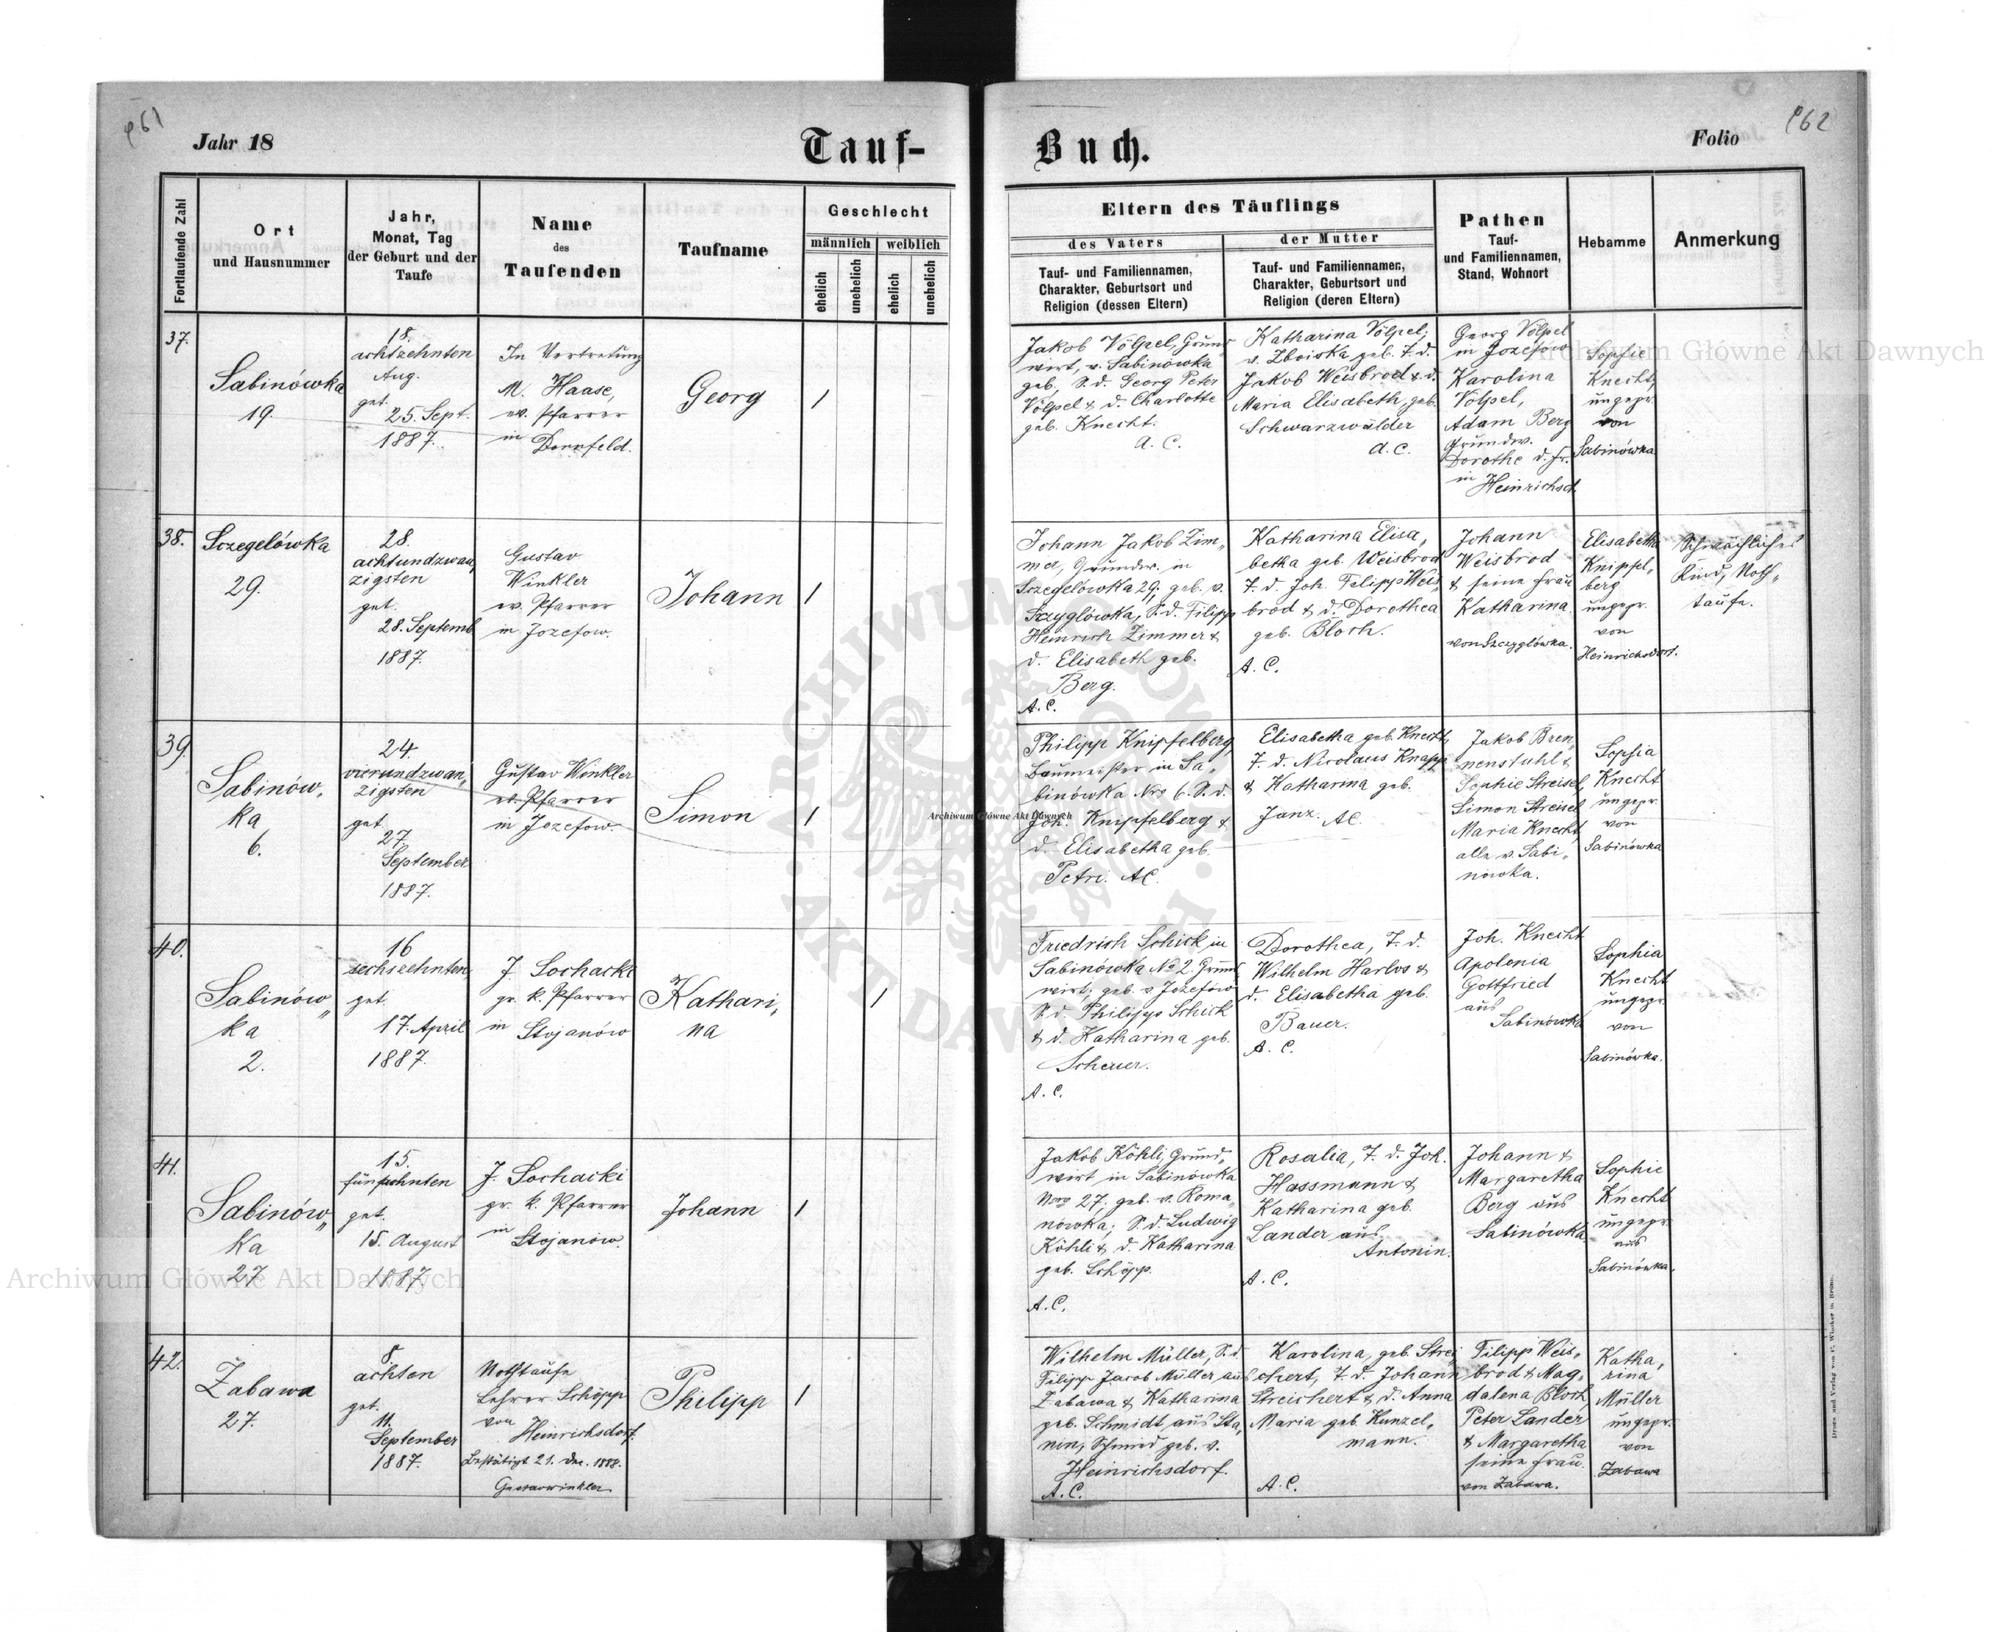 961
Jahr 18
Tauf-
Buch.
Folio
962
Fortlaufende Zahl
Ort
und Hausnummer
Jahr,
Monat, Tag
der Geburt und der
Taufe
Name
des
Taufenden
Taufname
Geschlecht
männlich
weiblich
ehelich
unehelich
ehelich
unehelich
Eltern des Täuflings
des Vaters
Tauf- und Familiennamen,
Charakter, Geburtsort und
Religion (dessen Eltern)
der Mutter
Tauf- und Familiennamen,
Charakter, Geburtsort und
Religion (deren Eltern)
Pathen
Tauf-
und Familiennamen,
Stand, Wohnort
Hebamme
Anmerkung
37.
Sabinówka
19.
18.
achtzehnten
Aug.
get.
25. Sept.
1887.
In Vertretung
M. Haase,
ev. Pfarrer
in
Dornfeld.
Georg
1
Jakob Völpel, Grund
wirt, v. Sabinówka
geb, S. d. Georg Peter
Völpel & d. Charlotte
geb. Knecht.
A. C.
Katharina Völpel,
v. Zboiska geb. T. d.
Jakob Weisbrod & d.
Maria Elisabeth, geb.
Schwarzwälder
A. C.
Georg Völpel
in Jozefow
Karolina
Völpel,
Adam Berg
Grundw.
Dorothe d. Fr.
in
Heinrichsd.
Sophie
Knecht,
ungepr.
von
Sabinówka
38.
Sczegelówka
29.
28.
achtundzwan,
zigsten
get.
28. Septemb
1887.
Gustav
Winkler
ev. Pfarrer
in Jozefow.
Johann
1
Johann Jakob Zim„
mer, Grundw. in
Sczegelówka 29, geb. v.
Szyglówka, S. d. Filipp
Heinrich Zimmer &
d. Elisabeth geb.
Berg.
A. C.
Katharina Elisa„
betha geb. Weisbrod
T. d. Joh. Filipp Weis„
brod & d. Dorothea
geb. Bloch.
A. C.
Johann
Weisbrod
& seine Frau
Katharina
von Szczyglówka.
Elisabetha
Knipfel„
berg
ungepr.
von
Heinrichsdorf.
Schwächliches
Kind, Noth„
taufe.
39.
Sabinów„
ka
6.
24.
vierundzwan„
zigsten
get.
27.
September
1887.
Gustav Winkler
ev. Pfarrer
in Jozefow.
Simon
1
Philipp Knipfelberg,
Baumeister in Sa„
binówka Nro 6. S. d.
Joh. Knipfelberg &
d. Elisabetha geb.
Petri. AC.
Elisabetha geb. Knecht,
T. d. Nicolaus Knapp
& Katharina geb.
Janz. AC.
Jakob Bren„
nenstuhl &
Sophie Streisel,
Simon Streisel
Maria Knecht,
alle v. Sabi„
nówka.
Sophia
Knecht
ungepr.
von
Sabinówka
40.
Sabinów„
ka
2.
16
sechszehnten
get.
17. April
1887.
J. Sochacki
gr. k. Pfarrer
in
Stojanów
Kathari,
na
1
Friedrich Schick in
Sabinówka No 2. Grund„
wirt, geb. v. Jozefów
S. d. Philipp Schick
& d. Katharina geb.
Scheuer.
A. C.
Dorothea, T. d.
Wilhelm Harlos &
d. Elisabetha geb.
Bauer.
A. C.
Joh. Knecht
Apolonia
Gottfried
aus
Sabinówka
Sophia
Knecht
ungepr.
von
Sabinówka.
41.
Sabinów„
ka
27
15.
fünfzehnten
get.
15. August
1887
J. Sochacki
gr. k. Pfarrer
in
Stojanów.
Johann
1
Jakob Köhli, Grund„
wirt in Sabinówka
Nro 27, geb. v. Roma„
nówka, S. d. Ludwig
Köhli & d. Katharina
geb. Schöpp.
A. C.
Rosalia, T. d. Joh.
Hassmann &
Katharina geb.
Lander aus
Antonin.
A. C.
Johann &
Margaretha
Berg aus
Sabinówka.
Sophie
Knecht
ungepr.
aus
Sabinówka.
42.
Zabawa
27.
8.
achten
get.
11.
September
1887.
Nothtaufe
Lehrer Schöpp
von
Heinrichsdorf.
Bestätigt 21. Dec. 1888.
Gustav Winkler
Philipp
1
Wilhelm Müller, S. d.
Filipp Jacob Müller aus
Zabawa & Katharina
geb. Schmidt aus Sta„
nin, Schmied geb. v.
Heinrichsdorf.
A. C.
Karolina, geb. Strei
chert, T. d. Johann
Streichert & d. Anna
Maria geb. Kunzel„
mann.
A. C.
Filipp Weis„
brod & Mag„
dalena Bloch,
Peter Lander
& Margaretha
seine Frau.
von Zabawa.
Katha„
rina
Müller
ungepr.
von
Zabawa
Archiwum Główne Akt Dawnych
Archiwum Główne Akt Dawnych
Archiwum Główne Akt Dawnych
ARCHIWUM GŁÓWNE AKT DAWNYCH